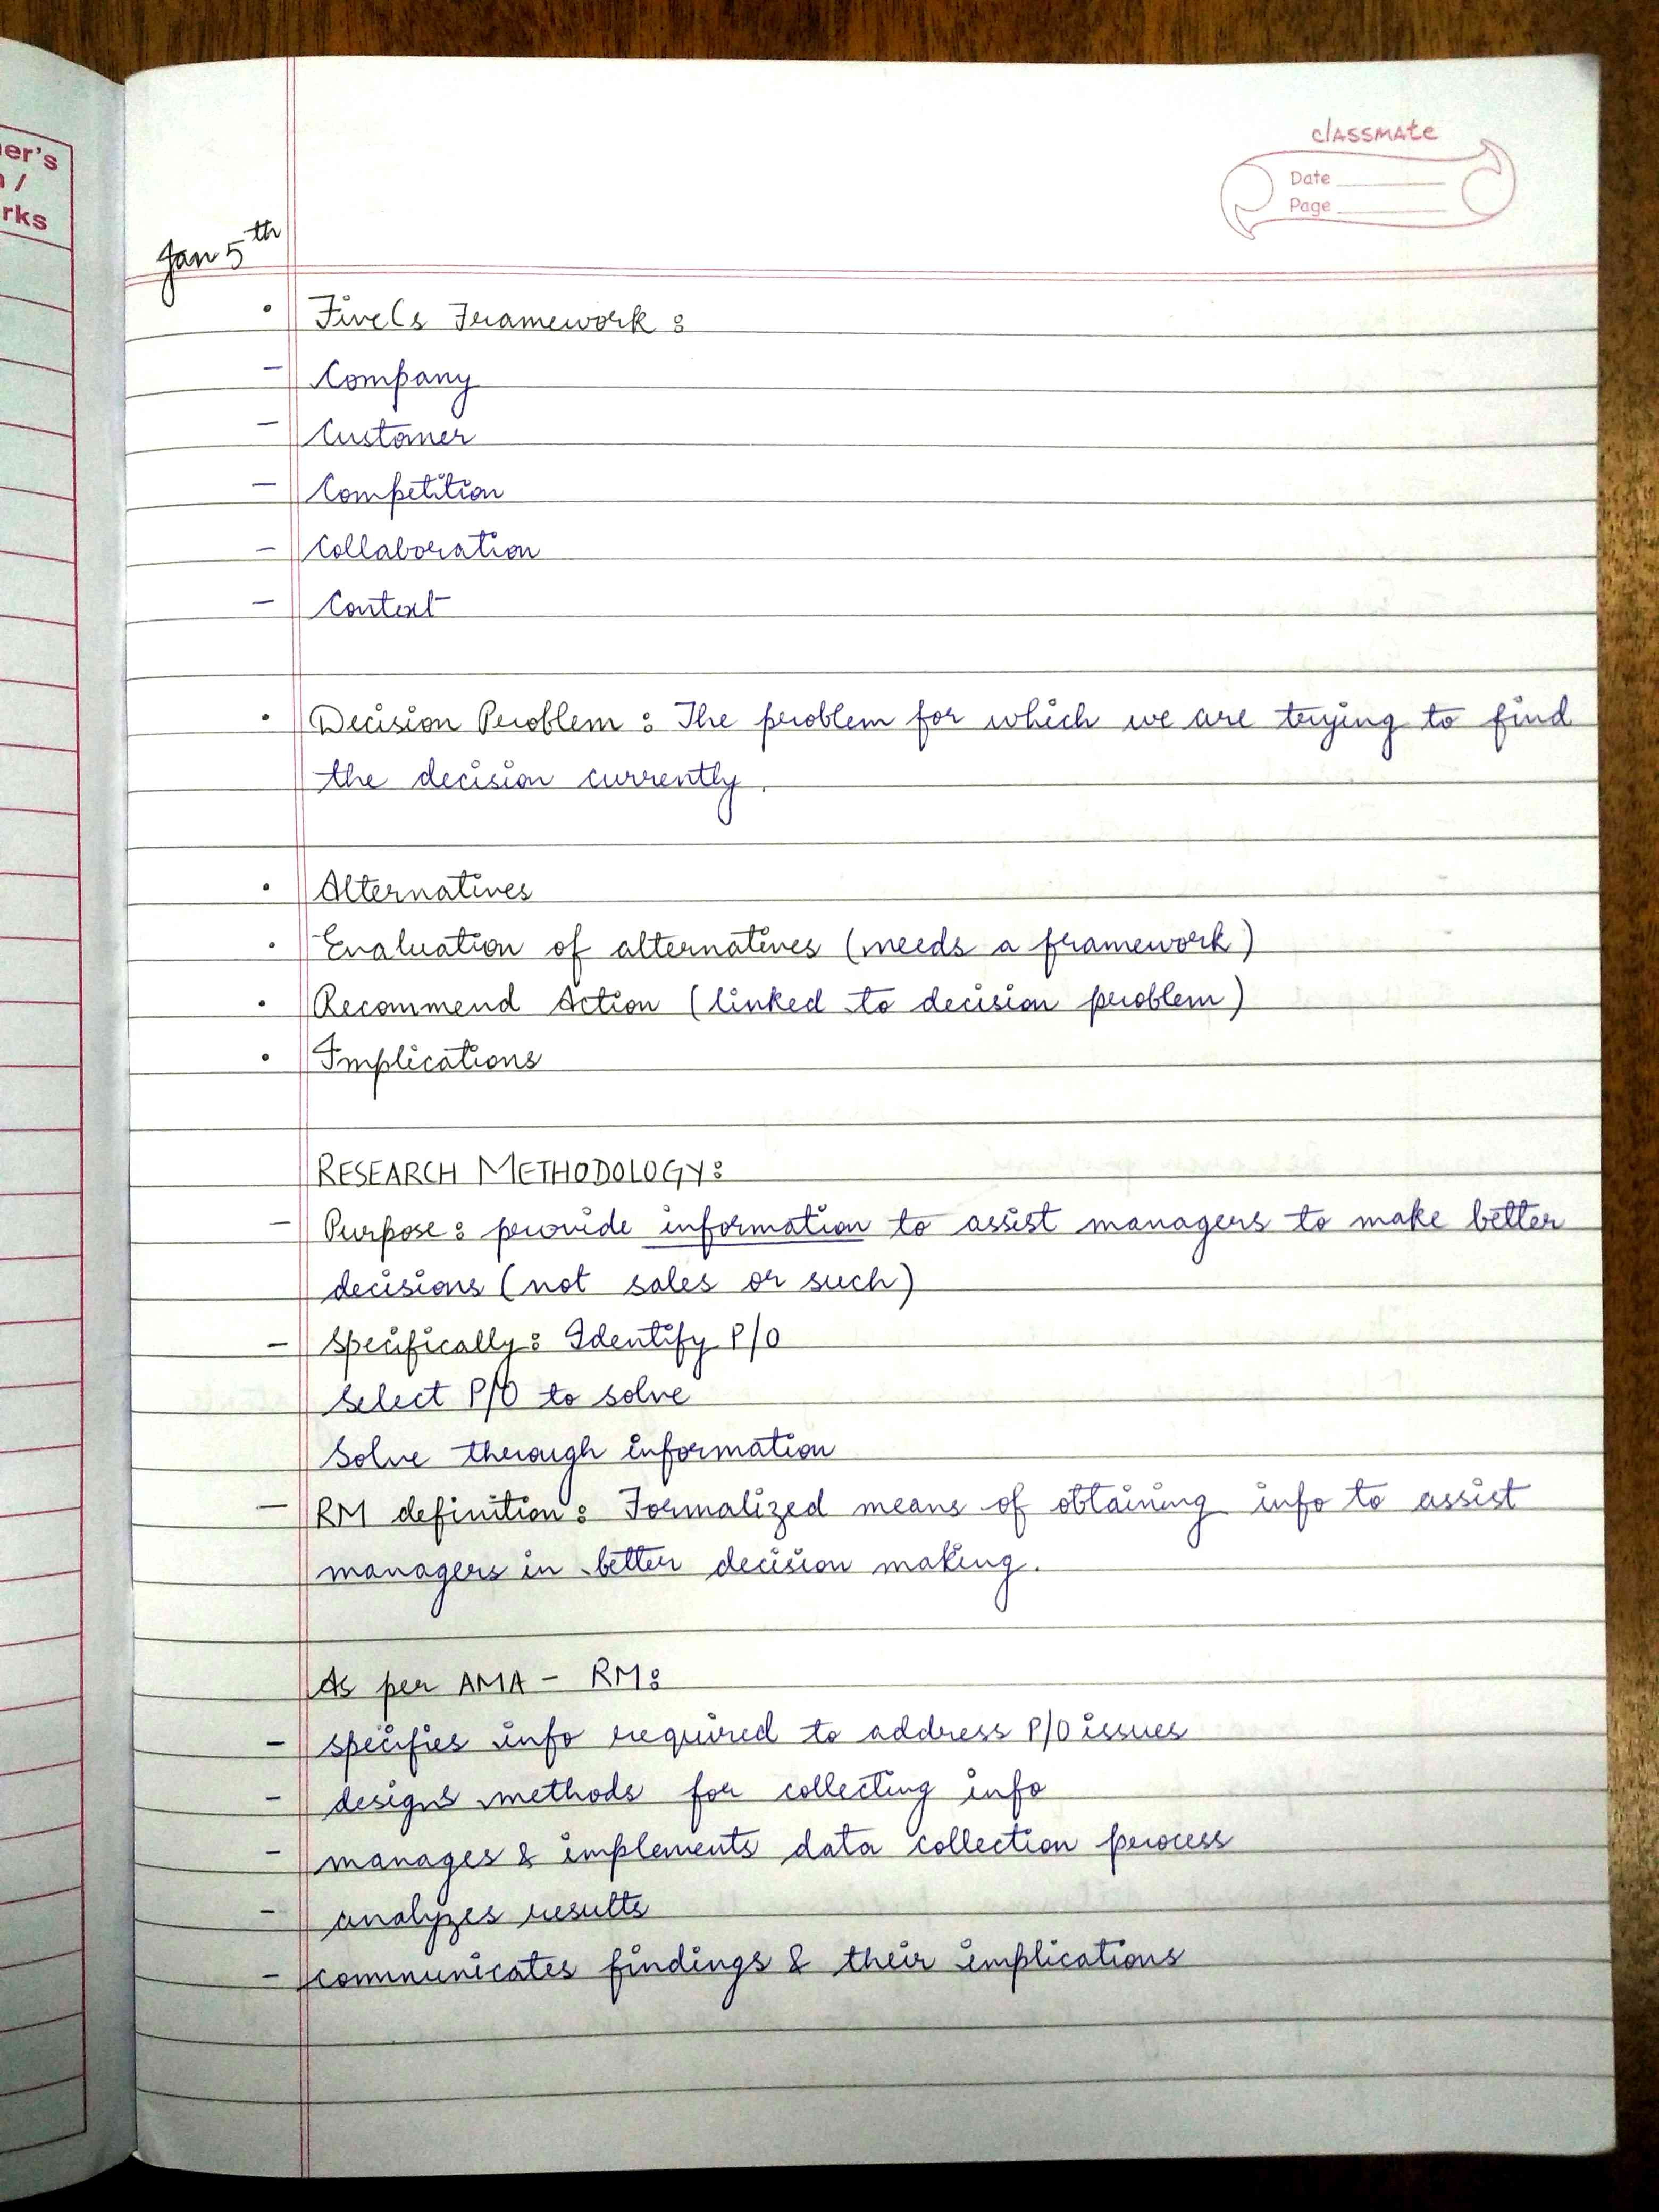 er's
/
rks
classmate
Date
Page
Jan 5th
• Five Cs Framework :
- Company
- Customer
- Competition
- Collaboration
- Context
• Decision Problem : The problem for which we are trying to find
the decision currently.
• Alternatives
• Evaluation of alternatives (needs a framework)
• Recommend Action (linked to decision problem)
• Implications
RESEARCH METHODOLOGY:
- Purpose : provide information to assist managers to make better
decisions (not sales or such)
- Specifically : Identify P/O
Select P/O to solve
Solve through information
- RM definition : Formalized means of obtaining info to assist
managers in better decision making.
As per AMA - RM:
- specifies info required to address P/O issues
- designs methods for collecting info
- manages & implements data collection process
- analyzes results
- communicates findings & their implications